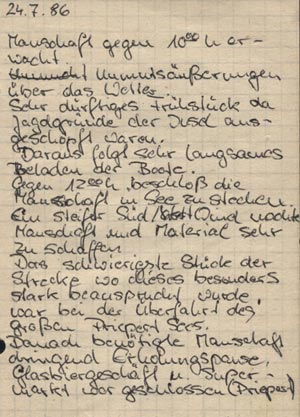 24.7.86
Manschaft gegen 10⁰⁰ h er-
wacht.
Unmutsäußerungen
über das Wetter.
Sehr dürftiges Frühstück da
Jagdgründe der Insel aus-
geschöpft waren.
Daraus folgt sehr langsames
Beladen der Boote.
Gegen 12⁰⁰h. beschloß die
Manschaft in See zu stechen.
Ein steifer Süd/West Wind machte
Manschaft und Material sehr
zu schaffen.
Das schwierigste Stück der
Strecke wo dieses besonders
stark beansprucht wurde,
war bei der Überfahrt des
großen Priepert Sees.
Danach benötigte Manschaft
dringend Erholungspause.
Glasbiergeschäft u. Super-
markt war geschlossen (Priepert)